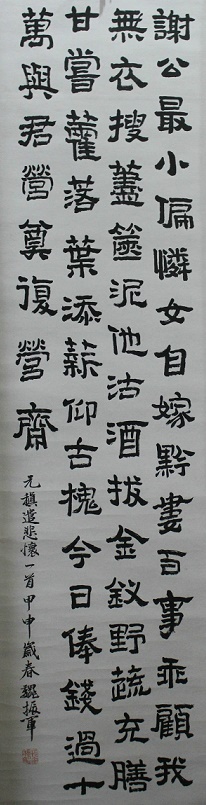 謝公最小偏憐女自嫁黔婁百事乖顧我
無衣搜藎篋泥他沽酒拔金釵野蔬充膳
甘嘗藿落葉添薪仰古槐今日俸錢過十
萬與君營奠復營齋
元稹遣悲懷一首甲申歲春魏振軍